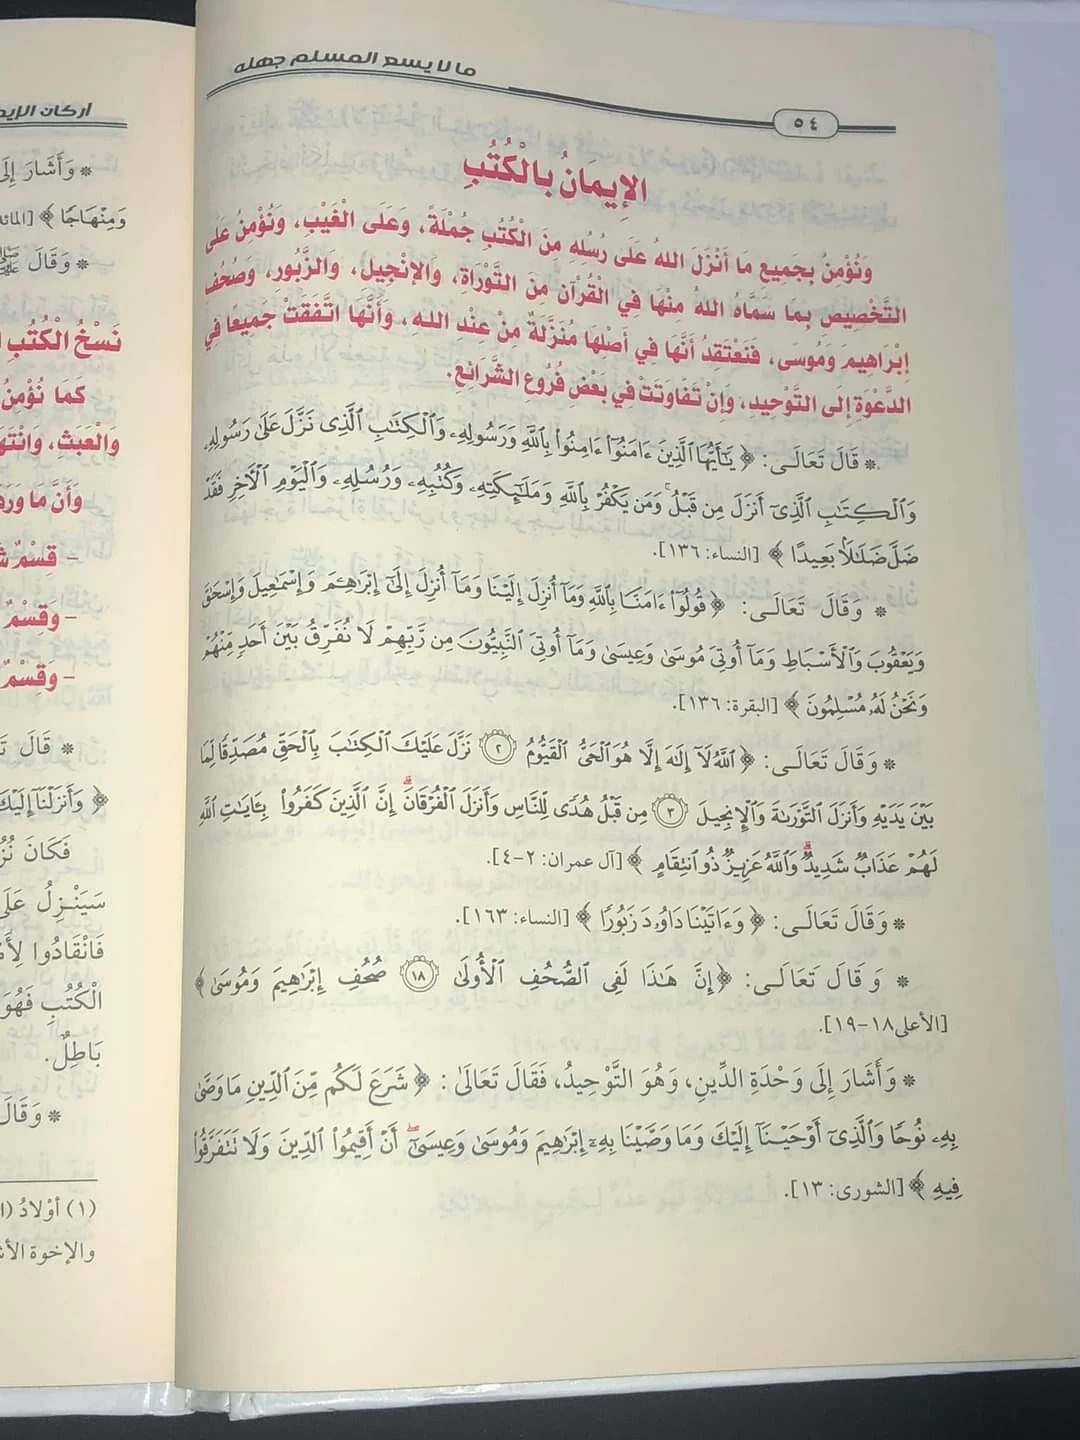 ما لا يسع المسلم جهله
٥٤
الإِيمَانُ بِالْكُتُبِ
وَنُؤْمِنُ بِجَمِيعِ مَا أَنْزَلَ اللهُ عَلَى رُسُلِهِ مِنَ الْكُتُبِ جُمْلَةً، وَعَلَى الْغَيْبِ، وَنُؤْمِنُ عَلَى
التَّخْصِيصِ بِمَا سَمَّاهُ اللهُ مِنْهَا فِي الْقُرْآنِ مِنَ التَّوْرَاةِ، وَالإِنْجِيلِ، وَالزَّبُورِ، وَصُحُفِ
إِبْرَاهِيمَ وَمُوسَى، فَنَعْتَقِدُ أَنَّهَا فِي أَصْلِهَا مُنَزَّلَةٌ مِنْ عِنْدِ اللهِ، وَأَنَّهَا اتَّفَقَتْ جَمِيعًا فِي
الدَّعْوَةِ إِلَى التَّوْحِيدِ، وَإِنْ تَفَاوَتَتْ فِي بَعْضِ فُرُوعِ الشَّرَائِعِ.
* قَالَ تَعَالَى: ﴿ يَٰٓأَيُّهَا ٱلَّذِينَ ءَامَنُوٓا۟ ءَامِنُوا۟ بِٱللَّهِ وَرَسُولِهِۦ وَٱلْكِتَٰبِ ٱلَّذِى نَزَّلَ عَلَىٰ رَسُولِهِۦ
وَٱلْكِتَٰبِ ٱلَّذِىٓ أَنزَلَ مِن قَبْلُ ۚ وَمَن يَكْفُرْ بِٱللَّهِ وَمَلَٰٓئِكَتِهِۦ وَكُتُبِهِۦ وَرُسُلِهِۦ وَٱلْيَوْمِ ٱلْءَاخِرِ فَقَدْ
ضَلَّ ضَلَٰلًۢا بَعِيدًا ﴾ [النساء: ١٣٦].
* وَقَالَ تَعَالَى: ﴿ قُولُوٓا۟ ءَامَنَّا بِٱللَّهِ وَمَآ أُنزِلَ إِلَيْنَا وَمَآ أُنزِلَ إِلَىٰٓ إِبْرَٰهِۦمَ وَإِسْمَٰعِيلَ وَإِسْحَٰقَ
وَيَعْقُوبَ وَٱلْأَسْبَاطِ وَمَآ أُوتِىَ مُوسَىٰ وَعِيسَىٰ وَمَآ أُوتِىَ ٱلنَّبِيُّونَ مِن رَّبِّهِمْ لَا نُفَرِّقُ بَيْنَ أَحَدٍ مِّنْهُمْ
وَنَحْنُ لَهُۥ مُسْلِمُونَ ﴾ [البقرة: ١٣٦].
* وَقَالَ تَعَالَى: ﴿ ٱللَّهُ لَآ إِلَٰهَ إِلَّا هُوَ ٱلْحَىُّ ٱلْقَيُّومُ ٢ نَزَّلَ عَلَيْكَ ٱلْكِتَٰبَ بِٱلْحَقِّ مُصَدِّقًا لِّمَا
بَيْنَ يَدَيْهِ وَأَنزَلَ ٱلتَّوْرَىٰةَ وَٱلْإِنجِيلَ ٣ مِن قَبْلُ هُدًى لِّلنَّاسِ وَأَنزَلَ ٱلْفُرْقَانَ ۗ إِنَّ ٱلَّذِينَ كَفَرُوا۟ بِـَٔايَٰتِ ٱللَّهِ
لَهُمْ عَذَابٌ شَدِيدٌ ۗ وَٱللَّهُ عَزِيزٌ ذُو ٱنتِقَامٍ ﴾ [آل عمران: ٢-٤].
* وَقَالَ تَعَالَى: ﴿ وَءَاتَيْنَا دَاوُۥدَ زَبُورًا ﴾ [النساء: ١٦٣].
* وَقَالَ تَعَالَى: ﴿ إِنَّ هَٰذَا لَفِى ٱلصُّحُفِ ٱلْأُولَىٰ ١٨ صُحُفِ إِبْرَٰهِيمَ وَمُوسَىٰ ﴾
[الأعلى١٨-١٩].
* وَأَشَارَ إِلَى وَحْدَةِ الدِّينِ، وَهُوَ التَّوْحِيدُ، فَقَالَ تَعَالَى: ﴿ شَرَعَ لَكُم مِّنَ ٱلدِّينِ مَا وَصَّىٰ
بِهِۦ نُوحًا وَٱلَّذِىٓ أَوْحَيْنَآ إِلَيْكَ وَمَا وَصَّيْنَا بِهِۦٓ إِبْرَٰهِيمَ وَمُوسَىٰ وَعِيسَىٰٓ ۖ أَنْ أَقِيمُوا۟ ٱلدِّينَ وَلَا تَتَفَرَّقُوا۟
فِيهِ ﴾ [الشورى: ١٣].
* وَأَشَارَ إِلَى
وَمِنْهَاجًا ﴾
* وَقَالَ ﷺ
نَسْخُ الْكُتُبِ
كَمَا نُؤْمِنُ
وَالْعَبَثِ، وَانْتَهَ
وَأَنَّ مَا وَرَدَ
- قِسْمٌ
- وَقِسْمٌ
- وَقِسْمٌ
* قَالَ
﴿ وَأَنزَلْنَآ إِلَيْكَ
فَكَانَ
سَيَنْزِلُ عَلَى
فَانْقَادُوا
الْكُتُبِ فَهُوَ
بَاطِلٌ.
* وَقَالَ
(١) أَوْلَادُ
والإخوة